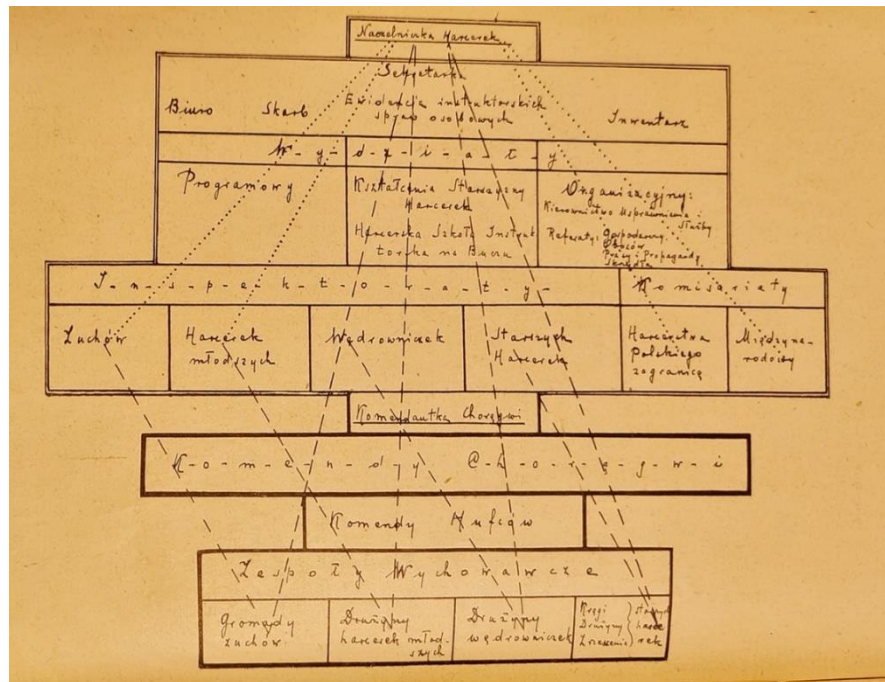 Naczelniczka Harcerek
Sekretarka
Biuro Skarb Ewidencja instruktorskich spraw osobowych Inwentarz
W-y-d-z-i-a-ł-y
Programowy
Kształcenia Starszyzny
Harcerek
Harcerska Szkoła Instruk
torska na Buczu
Organizacyjny:
Kierownictwo Usprawnienia i
Służby
Referaty: Gospodarczy
Obozów
Prasy i Propagandy
I-n-s-p-e-k-t-o-r-a-t-y-
Komisariaty
Zuchów
Harcerek
młodszych
Wędrowniczek
Starszych
Harcerek
Harcerstwa
Polskiego
zagranicą
Międzyna-
rodowy
Komendantka Chorągwi
K-o-m-e-n-d-y C-h-o-r-ą-g-w-i
Komendy Hufców
Zespoły Wychowawcze
Gromady
zuchów
Drużyny
harcerek młod-
szych
Drużyny
wędrowniczek
Kręgi
Drużyny
Zrzeszenia
starszych
harce
rek